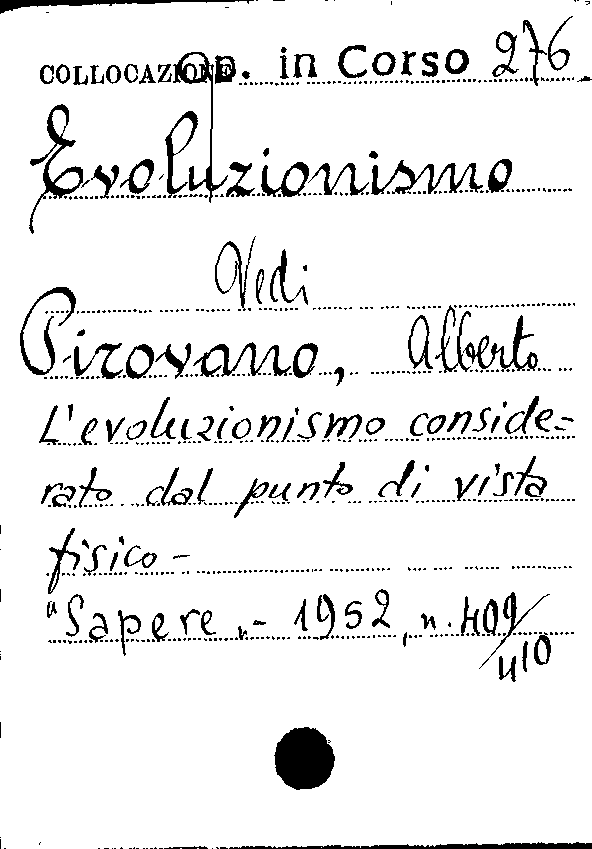 COLLOCAZIONE Op. in Corso 276.
Evoluzionismo
Vedi
Pirovano, Alberto
L'evoluzionismo conside-
rato dal punto di vista
fisico -
"Sapere„ - 1952, n. 409/
410